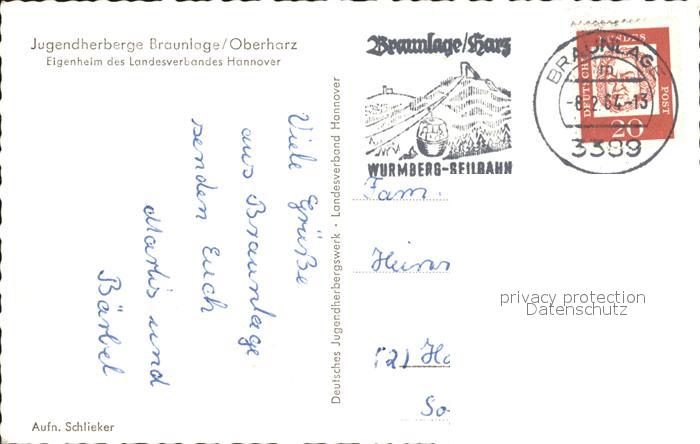 Jugendherberge Braunlage/Oberharz
Eigenheim des Landesverbandes Hannover
Viele Grüße
aus Braunlage
senden Euch
und
Bärbel
Aufn. Schlieker
Deutsches Jugendherbergswerk · Landesverband Hannover
Braunlage/Harz
WURMBERG-SEILBAHN
BRAUNLAGE
m
-8.2.64-13
3389
DEUTSCHE BUNDESPOST
20
Fam.
privacy protection
Datenschutz